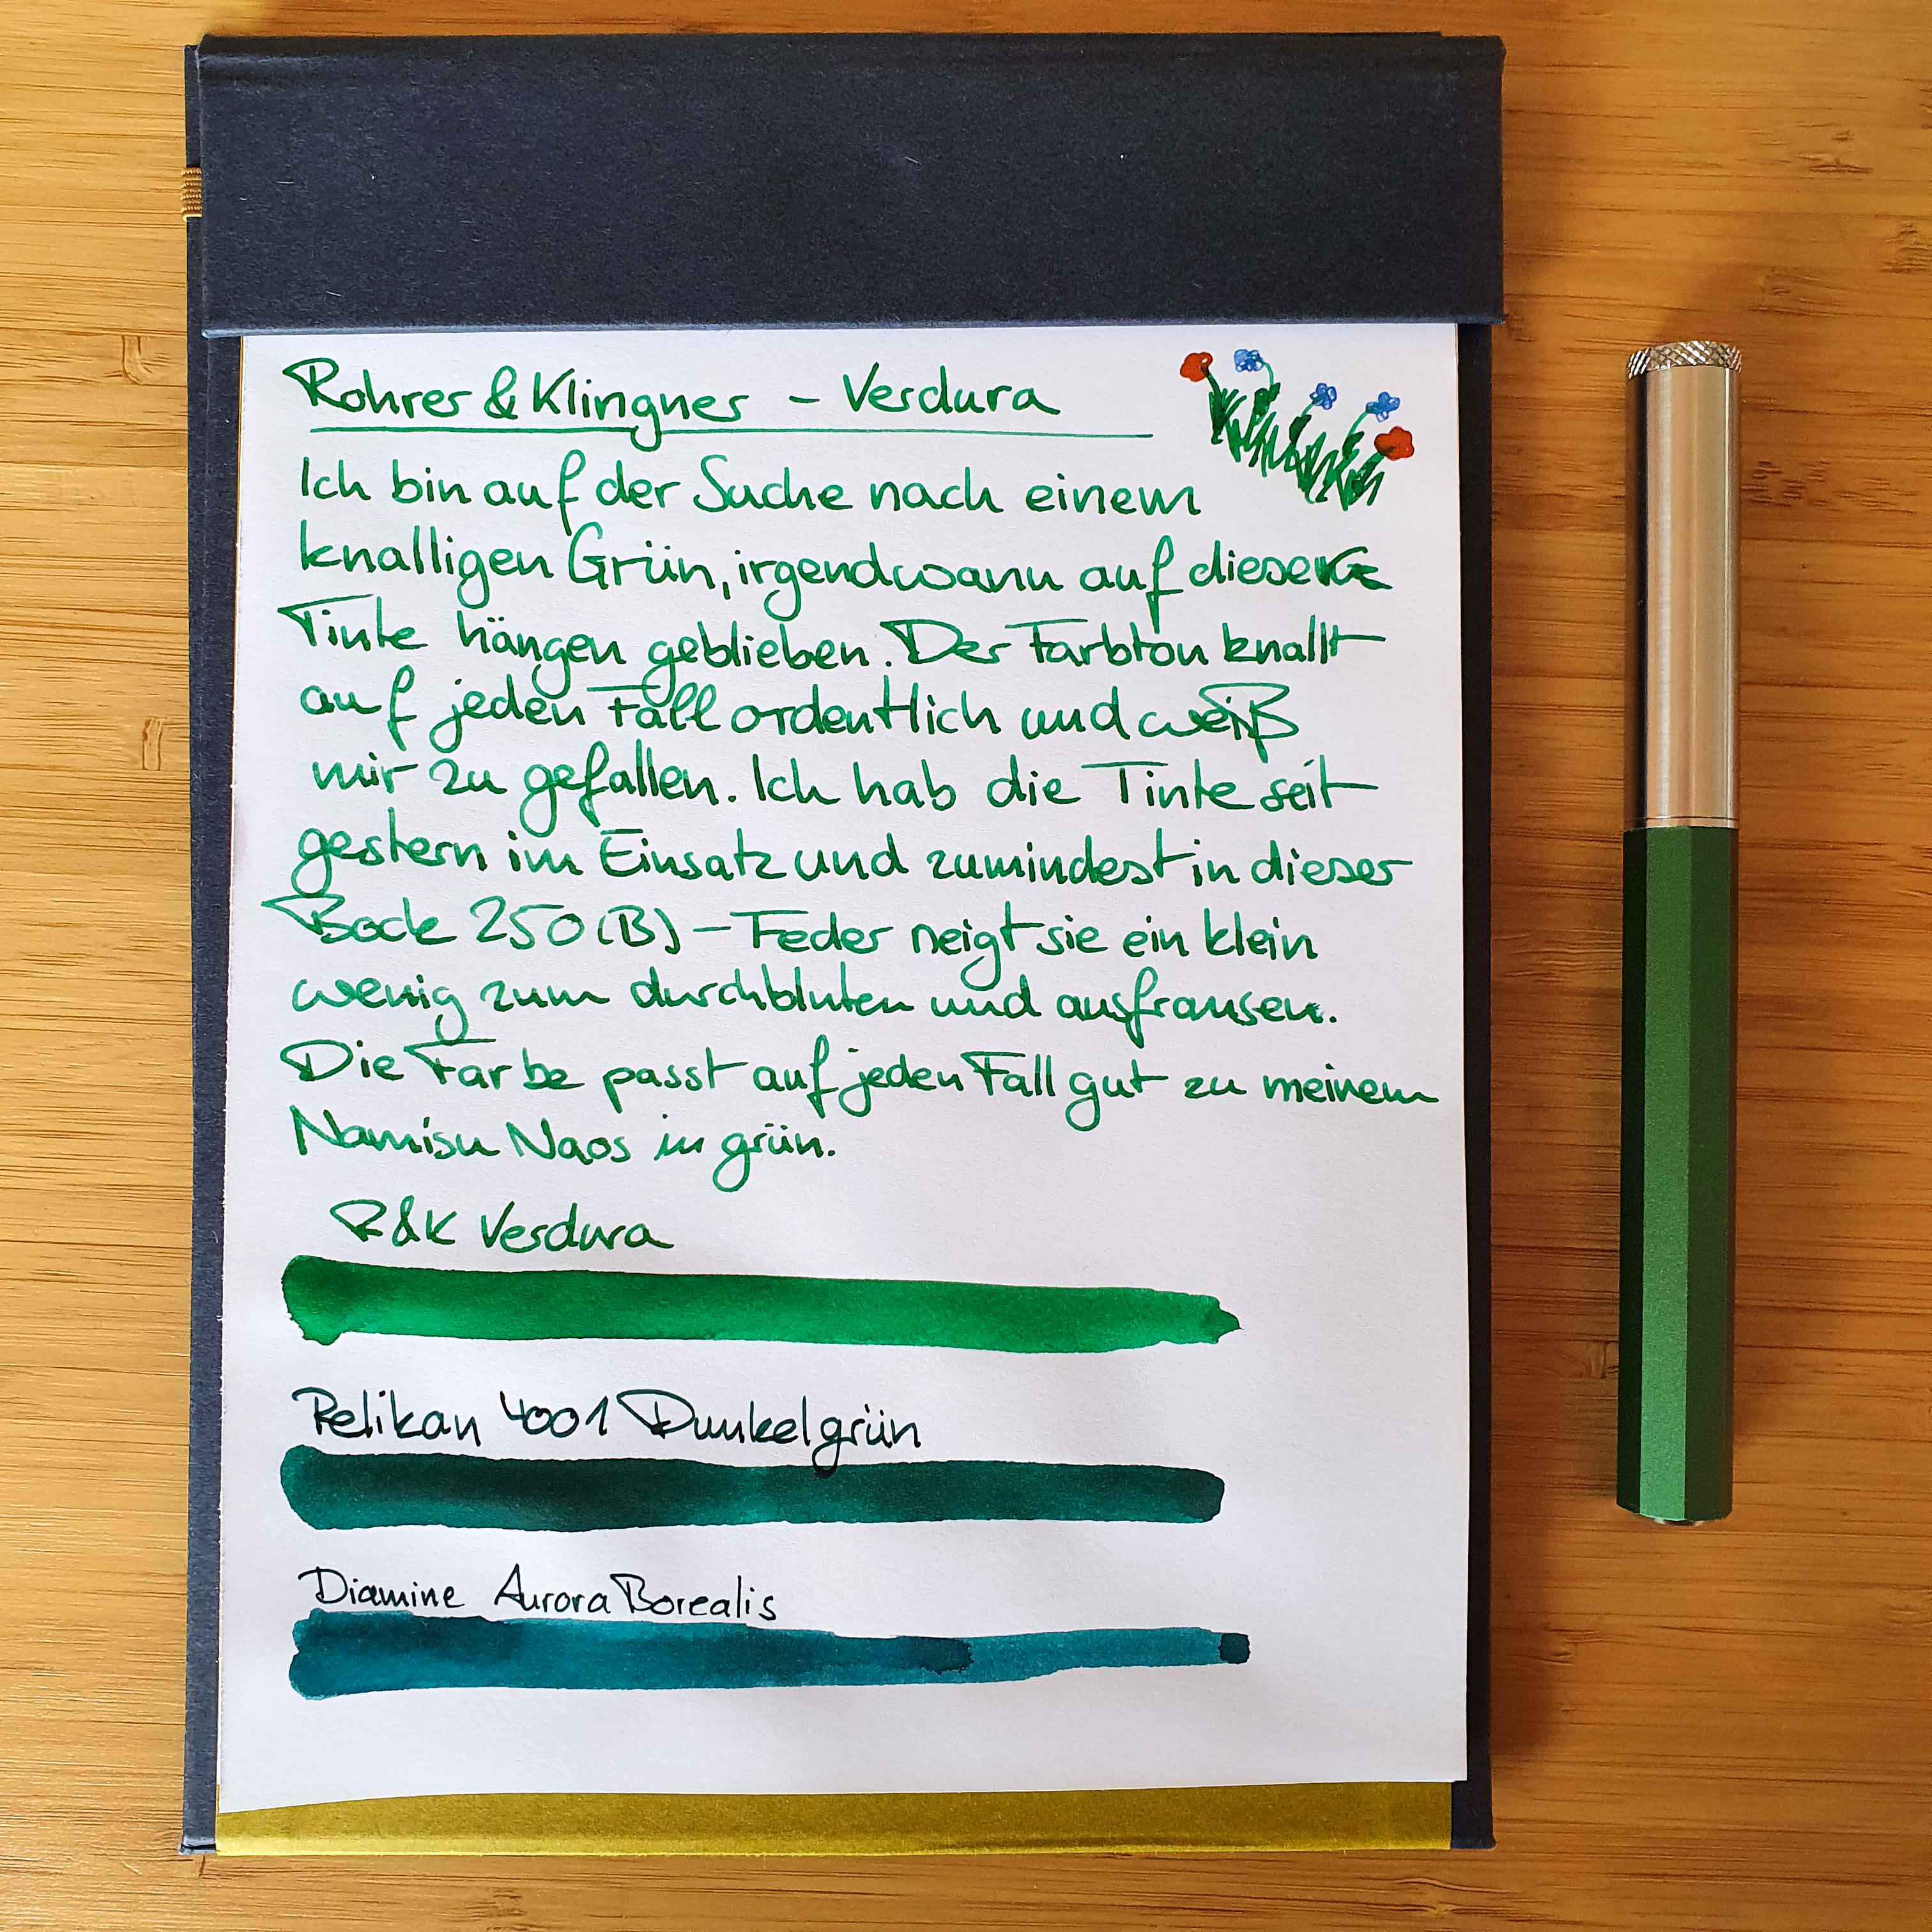 Rohrer & Klingner – Verdura
Ich bin auf der Suche nach einem
knalligen Grün, irgendwann auf dieser
Tinte hängen geblieben. Der Farbton knallt
auf jeden Fall ordentlich und weiß
mir zu gefallen. Ich hab die Tinte seit
gestern im Einsatz und zumindest in dieser
Bock 250 (B) – Feder neigt sie ein klein
wenig zum durchbluten und ausfransen.
Die Farbe passt auf jeden Fall gut zu meinem
Namisu Naos in grün.
R&K Verdura
Pelikan 4001 Dunkelgrün
Diamine Aurora Borealis